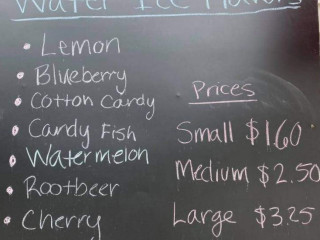 Water Ice Flavors
• Lemon
• Blueberry
• Cotton Candy
• Candy Fish
• Watermelon
• Rootbeer
• Cherry
Prices
Small $1.60
Medium $2.50
Large $3.25